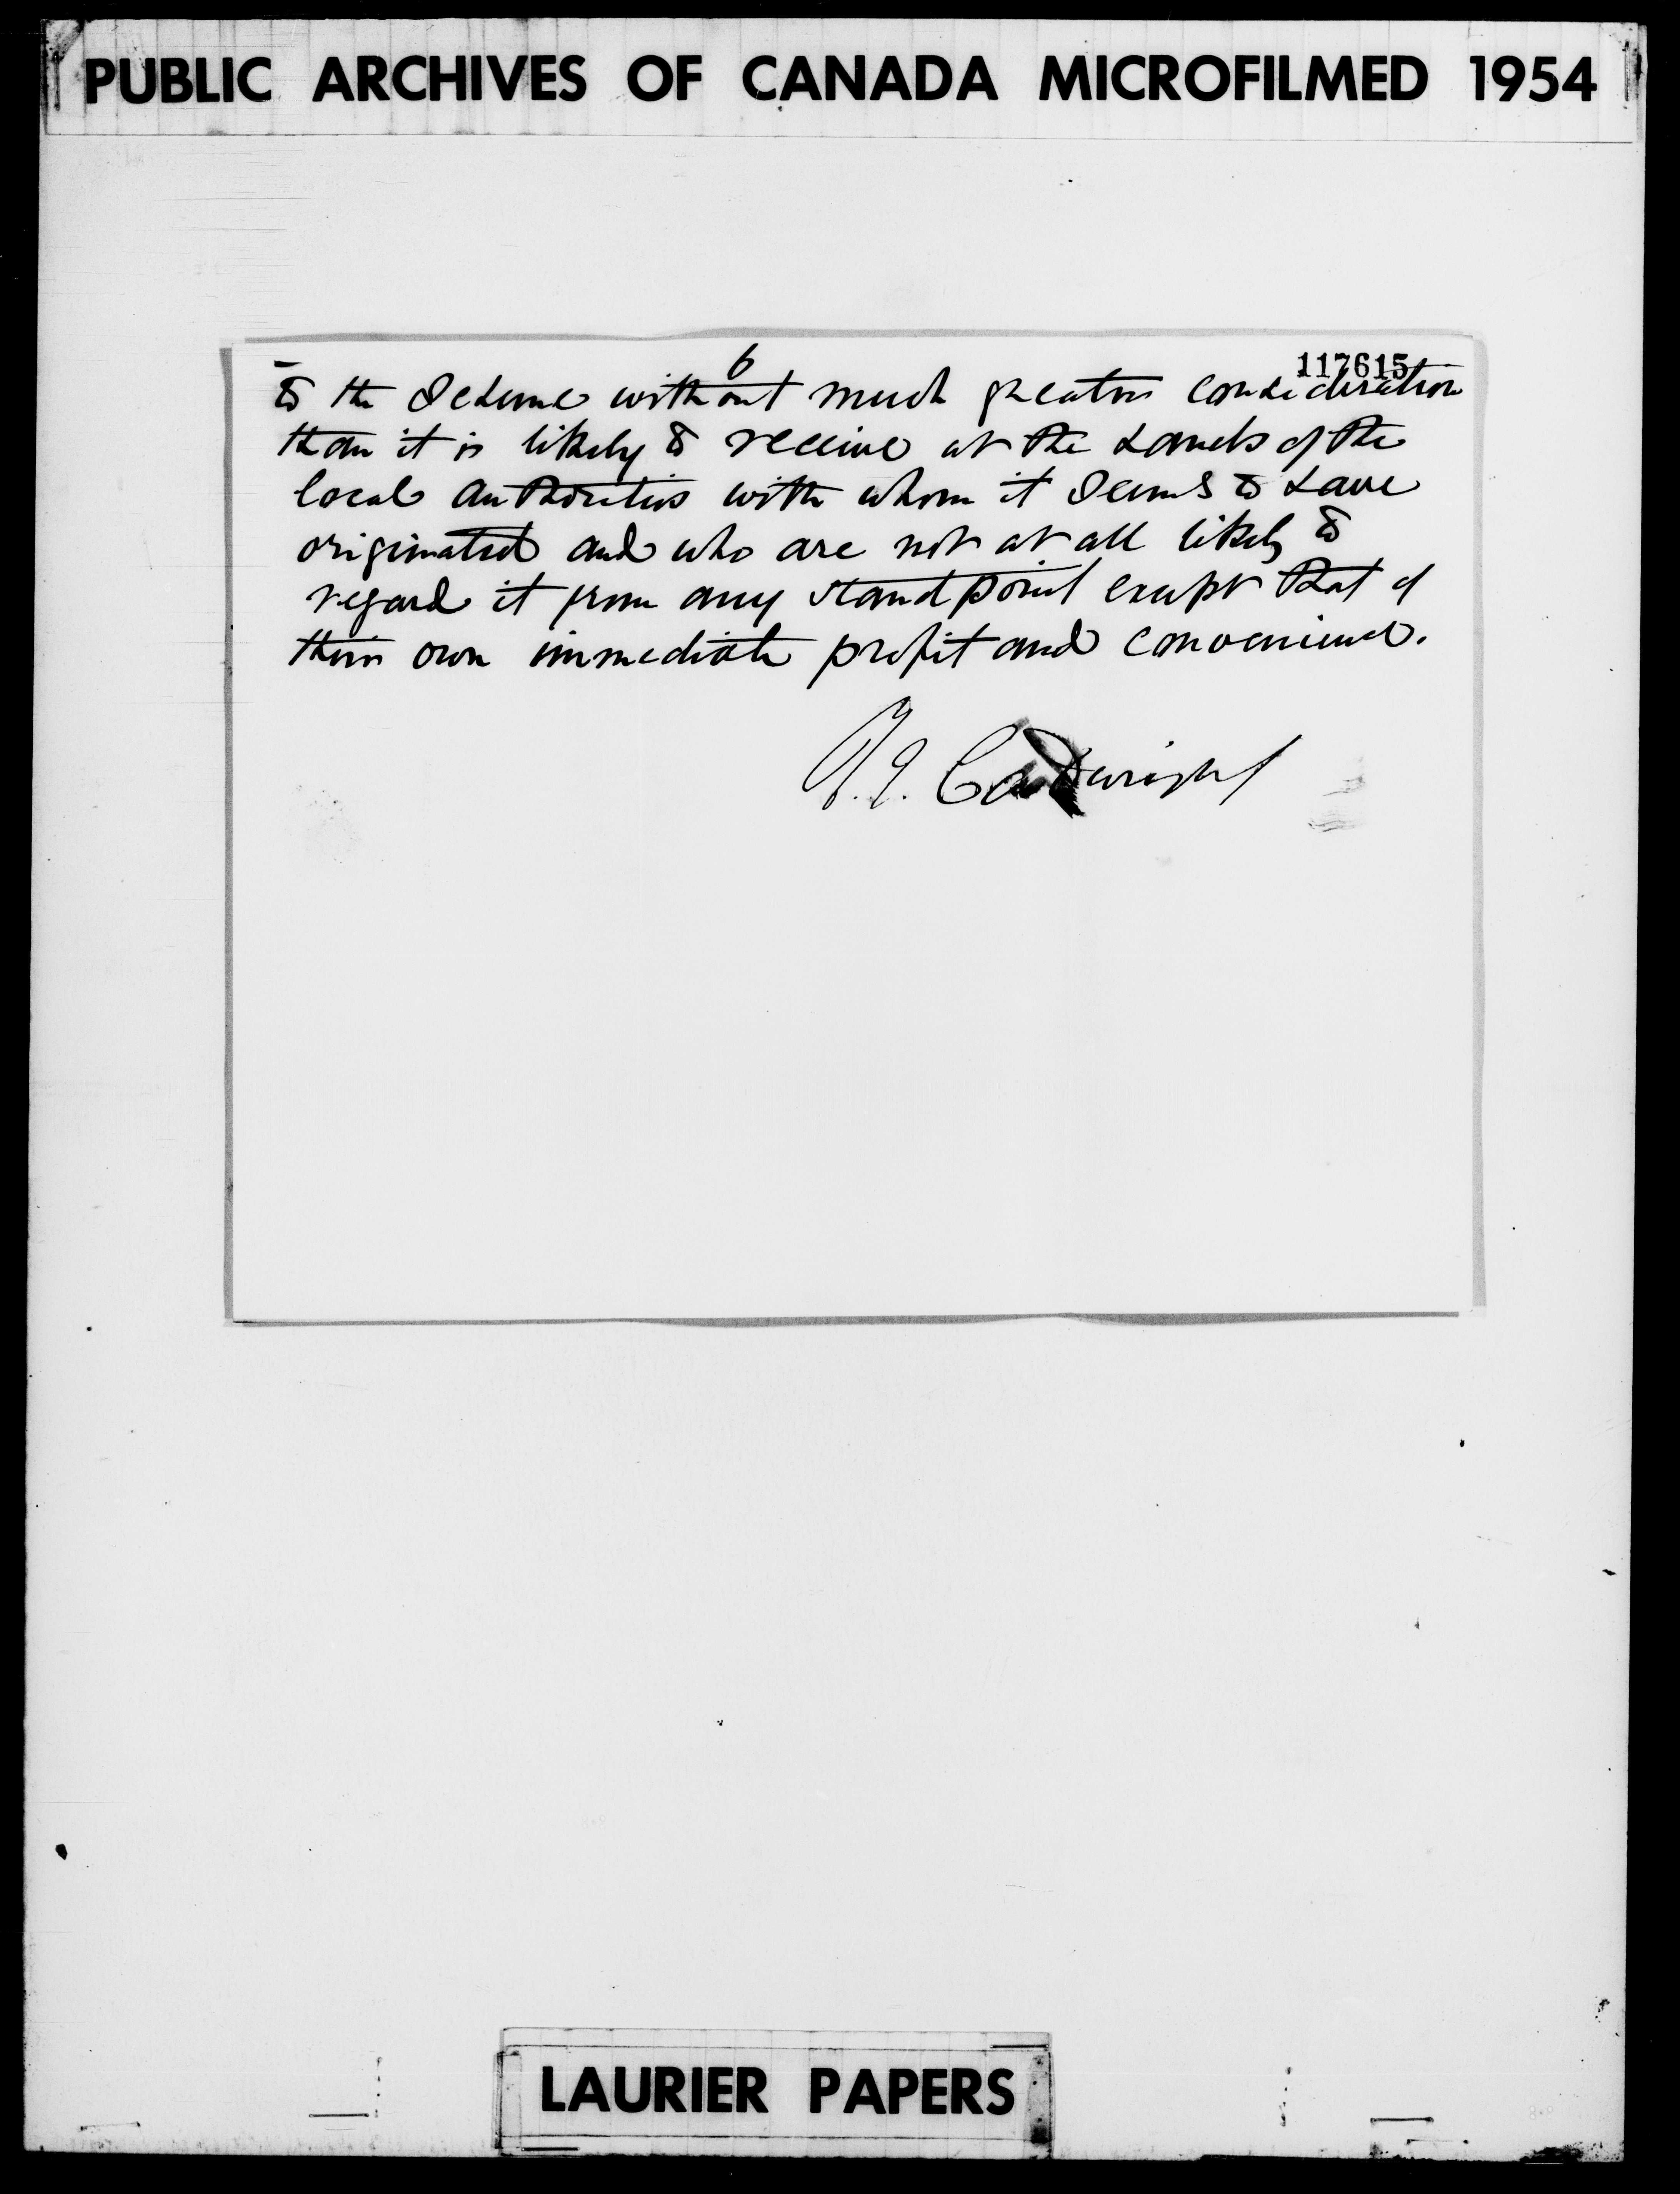 PUBLIC ARCHIVES OF CANADA MICROFILMED 1954
6
117615
to the scheme without much greater consideration
than it is likely to receive at the hands of the
local authorities with whom it seems to have
originated and who are not at all likely to
regard it from any standpoint except that of
their own immediate profit and convenience.
Cartwright
LAURIER PAPERS